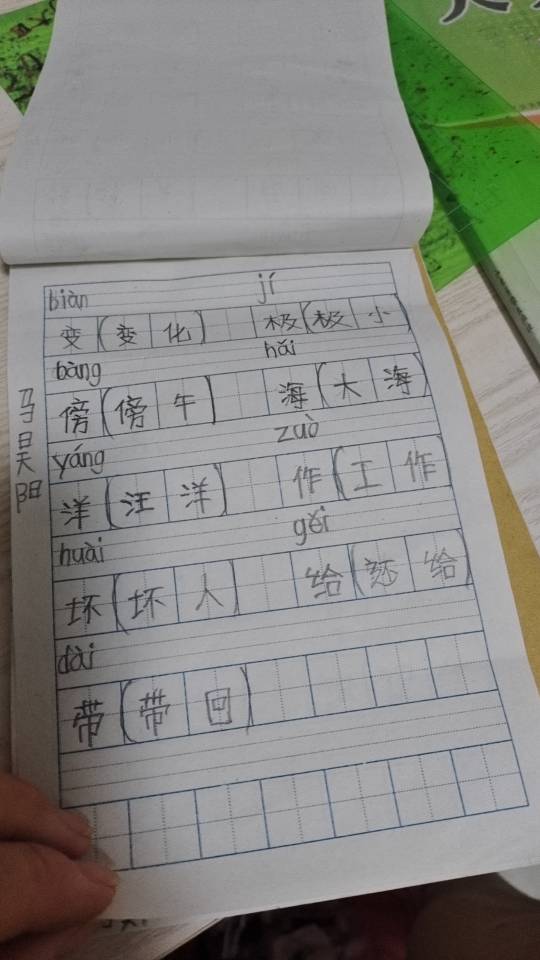 biàn jí
变(变化) 极(极小)
bàng hǎi
傍(傍午) 海(大海)
yáng zuò
洋(汪洋) 作(工作
huài gěi
坏(坏人) 给(还给)
dài
带(带回)
马昊阳